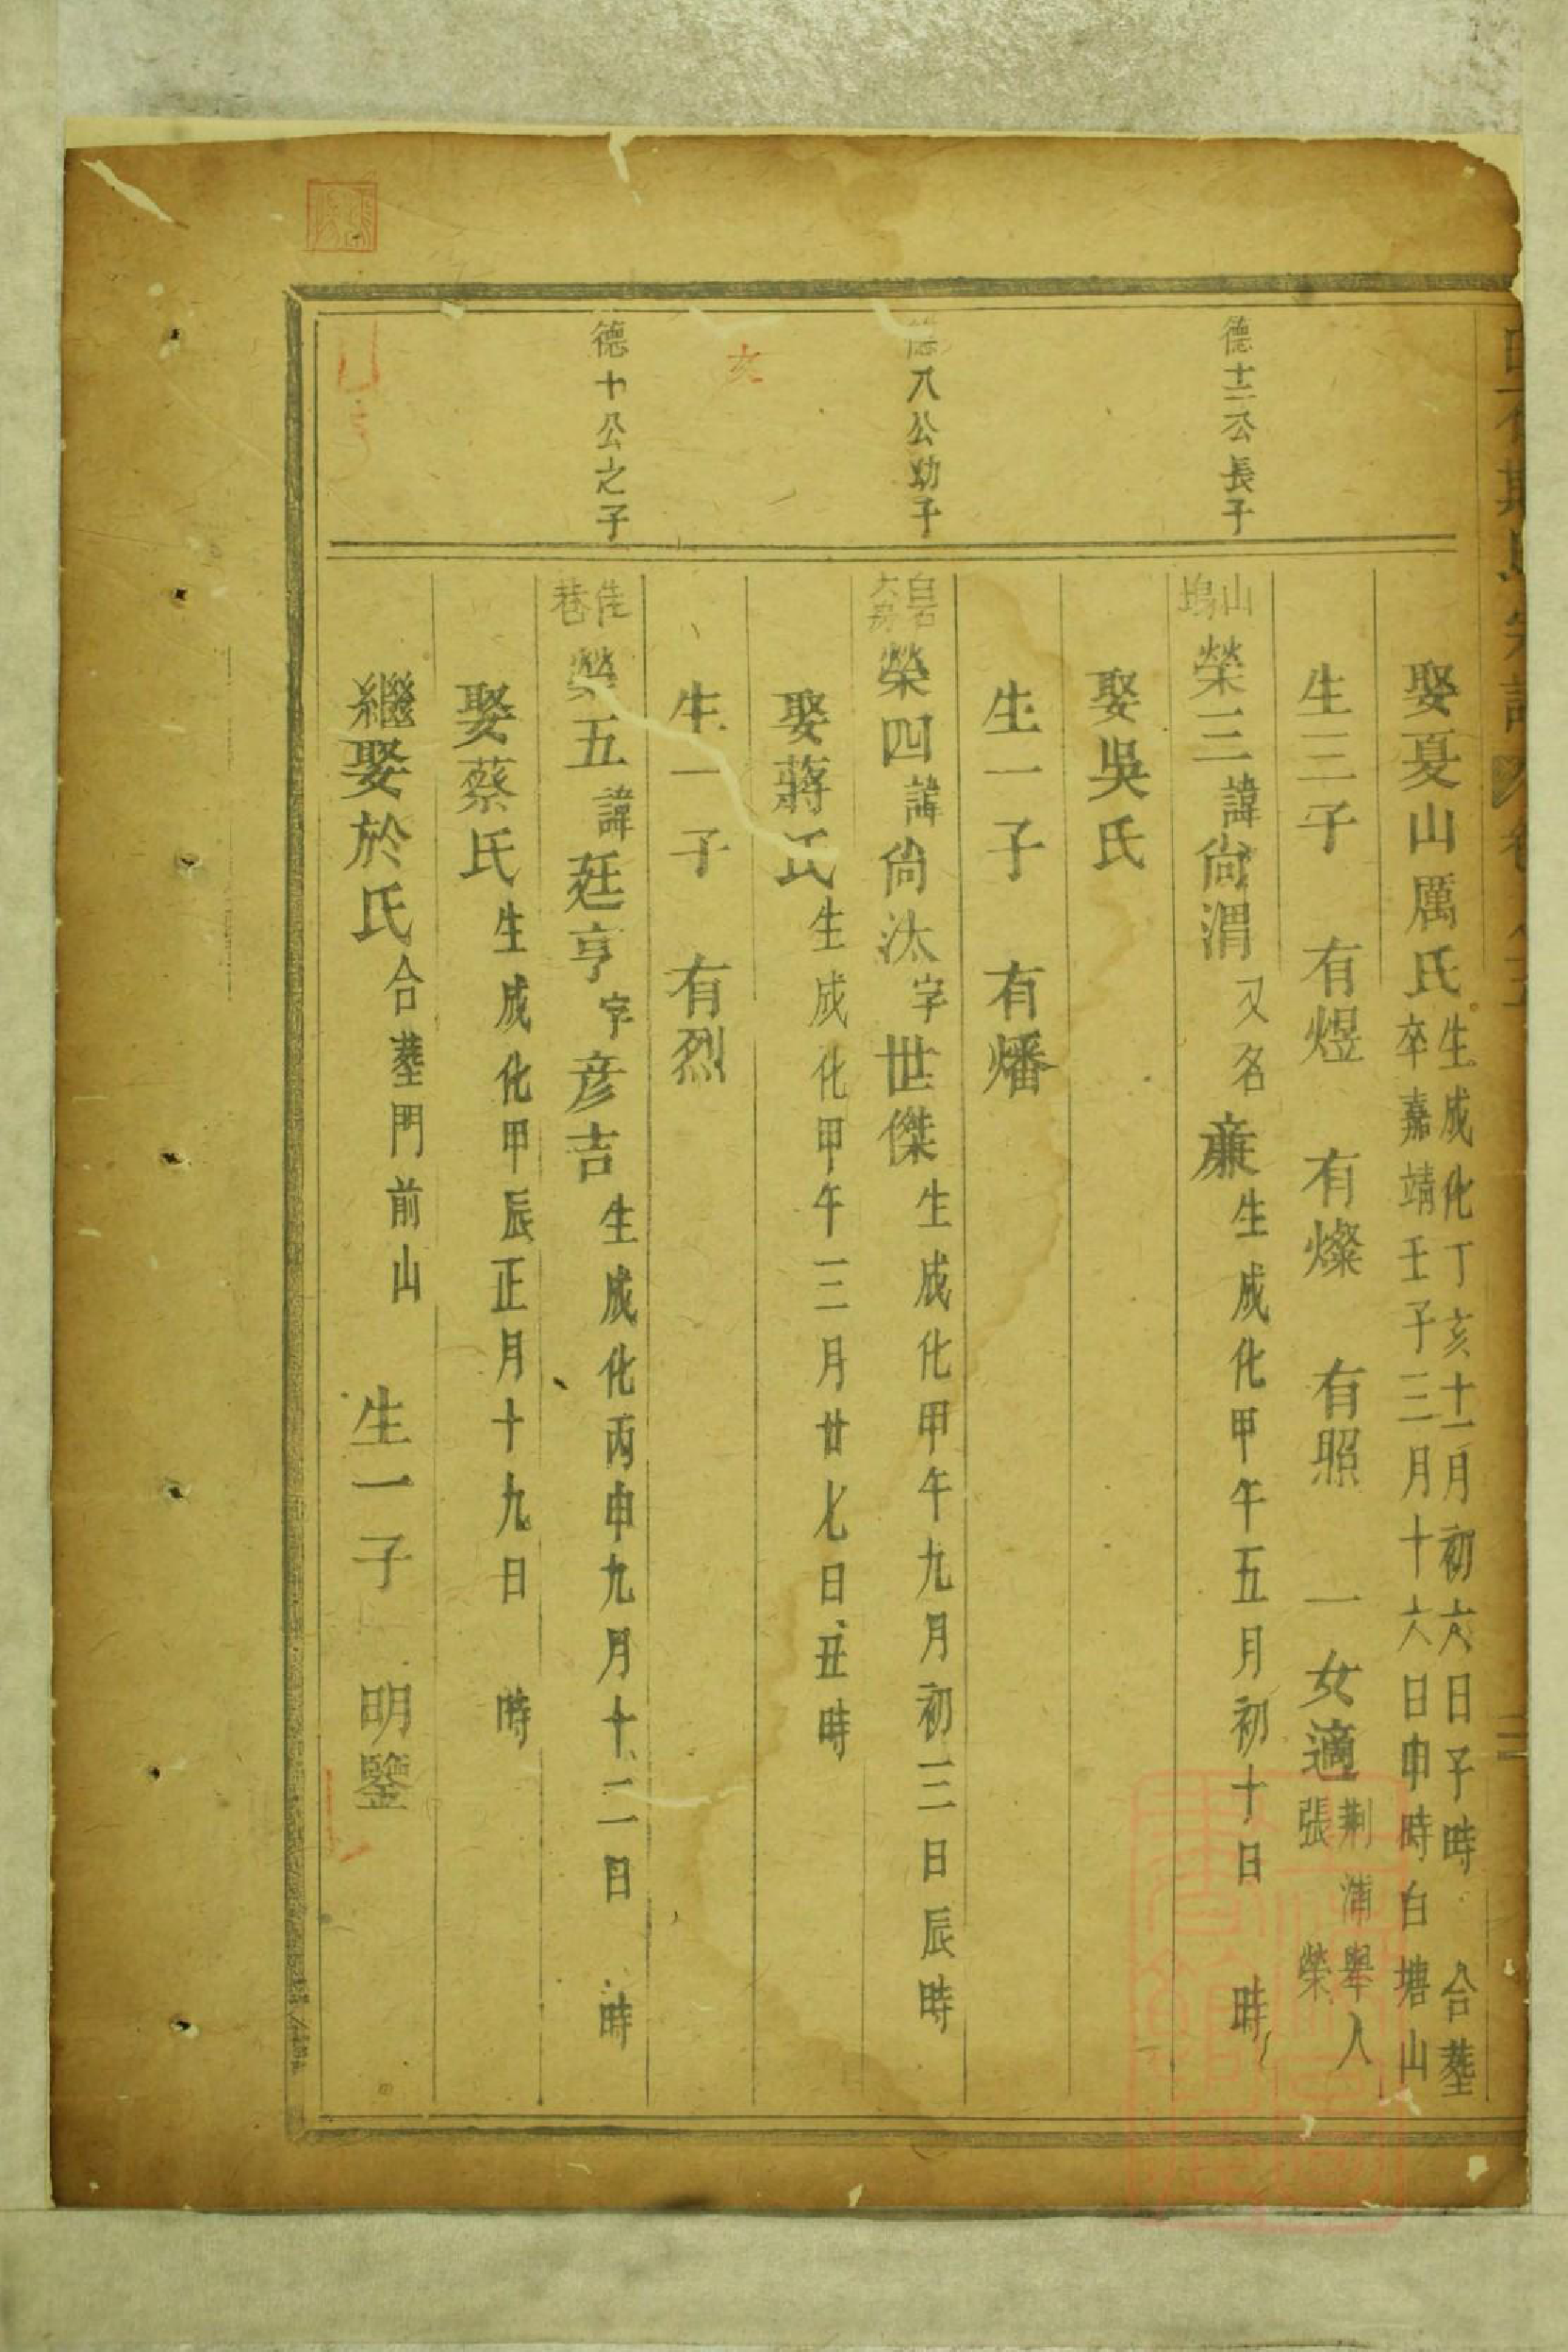 娶夏山厲氏生成化丁亥十一月初六日子時 合塟
卒嘉靖壬子三月十六日申時白塘山
生三子 有煜 有燦 有照 一女適荆浦舉人
張榮
德十二公長子
山塢
榮三諱尙渭又名㢘生成化甲午五月初十日 時
娶吳氏
生一子 有燔
德八公幼子
榮四諱尙汰字世傑生成化甲午九月初三日辰時
娶蔣氏生成化甲午三月廿七日丑時
生一子 有烈
德十公之子
榮五諱廷亨字彦吉生成化丙申九月十二日 時
娶蔡氏生成化甲辰正月十九日 時
繼娶於氏合塟門前山 生一子 明鑒